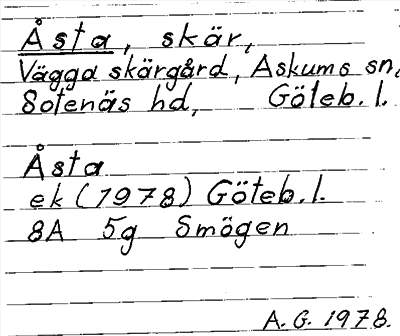 Åsta, skär,
Vägga skärgård, Askums sn,
Sotenäs hd, Göteb. l.
Åsta
ek (1978) Göteb. l.
8A 5g Smögen
A. G. 1978.